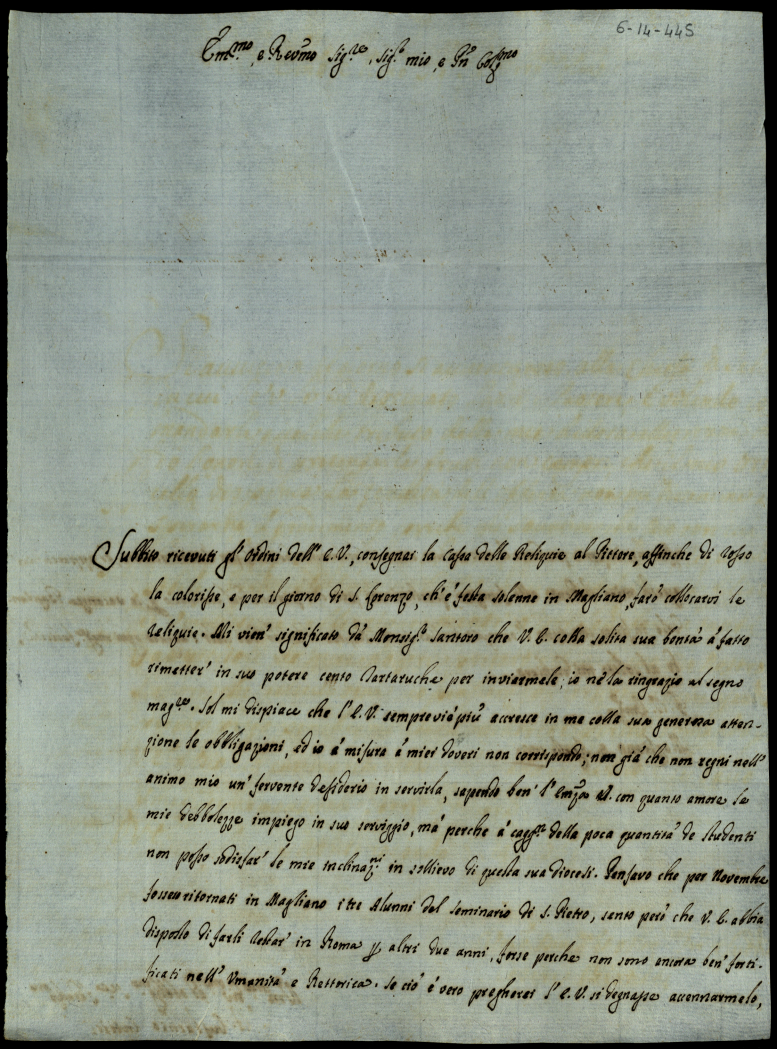 6-14-445
Em.mo, e Reumo Sig.re, Sig.r mio, e Pn̄ Col.mo
Subbito ricevuti gl'Ordini dell'E.V., consegnai la Cassa delle Reliquie al Pittore, affinche di rosso
la colorisse, e per il giorno di S. Lorenzo, ch'è festa solenne in Magliano, farò collocarvi le
reliquie. Mi vien' significato dà Monsig.r Santoro che V.E. colla solita sua bontà à fatto
rimetter' in suo potere cento Tartaruche per inviarmele; io nè la ringrazio al segno
mag.re. Sol mi dispiace che l'E.V. semprevià più accresce in me colla sua generosa atten-
zione le obbligazioni, ed io à misura à miei doveri non corrispondo; non già che non regni nell'
animo mio un' fervente desiderio in servirla, sapendo ben' l'Emza V. con quanto amore le
mie debbolezze impiego in suo serviggio, mà perche à cagg.ne della poca quantità de studenti
non posso sodisfar' le mie inclinaz.ni in sollievo di questa sua diocesi. Pensavo che per Novembre
fossero ritornati in Magliano i tre Alunni del Seminario di S. Pietro, sento però che V.E. abbia
disposto di farli restar' in Roma p altri due anni, forse perche non sono ancora ben' forti-
ficati nell'Umanità e Rettorica. Se ciò è vero pregherei l'E.V. si degnasse accennarmelo,